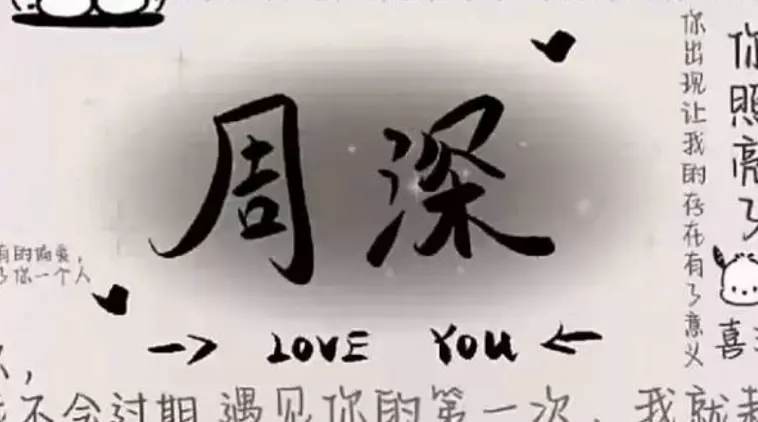 周深
LOVE YOU
你出现让我的存在有了意义
你照亮了
喜
你一个人
不会过期
遇见你的第一次，我就